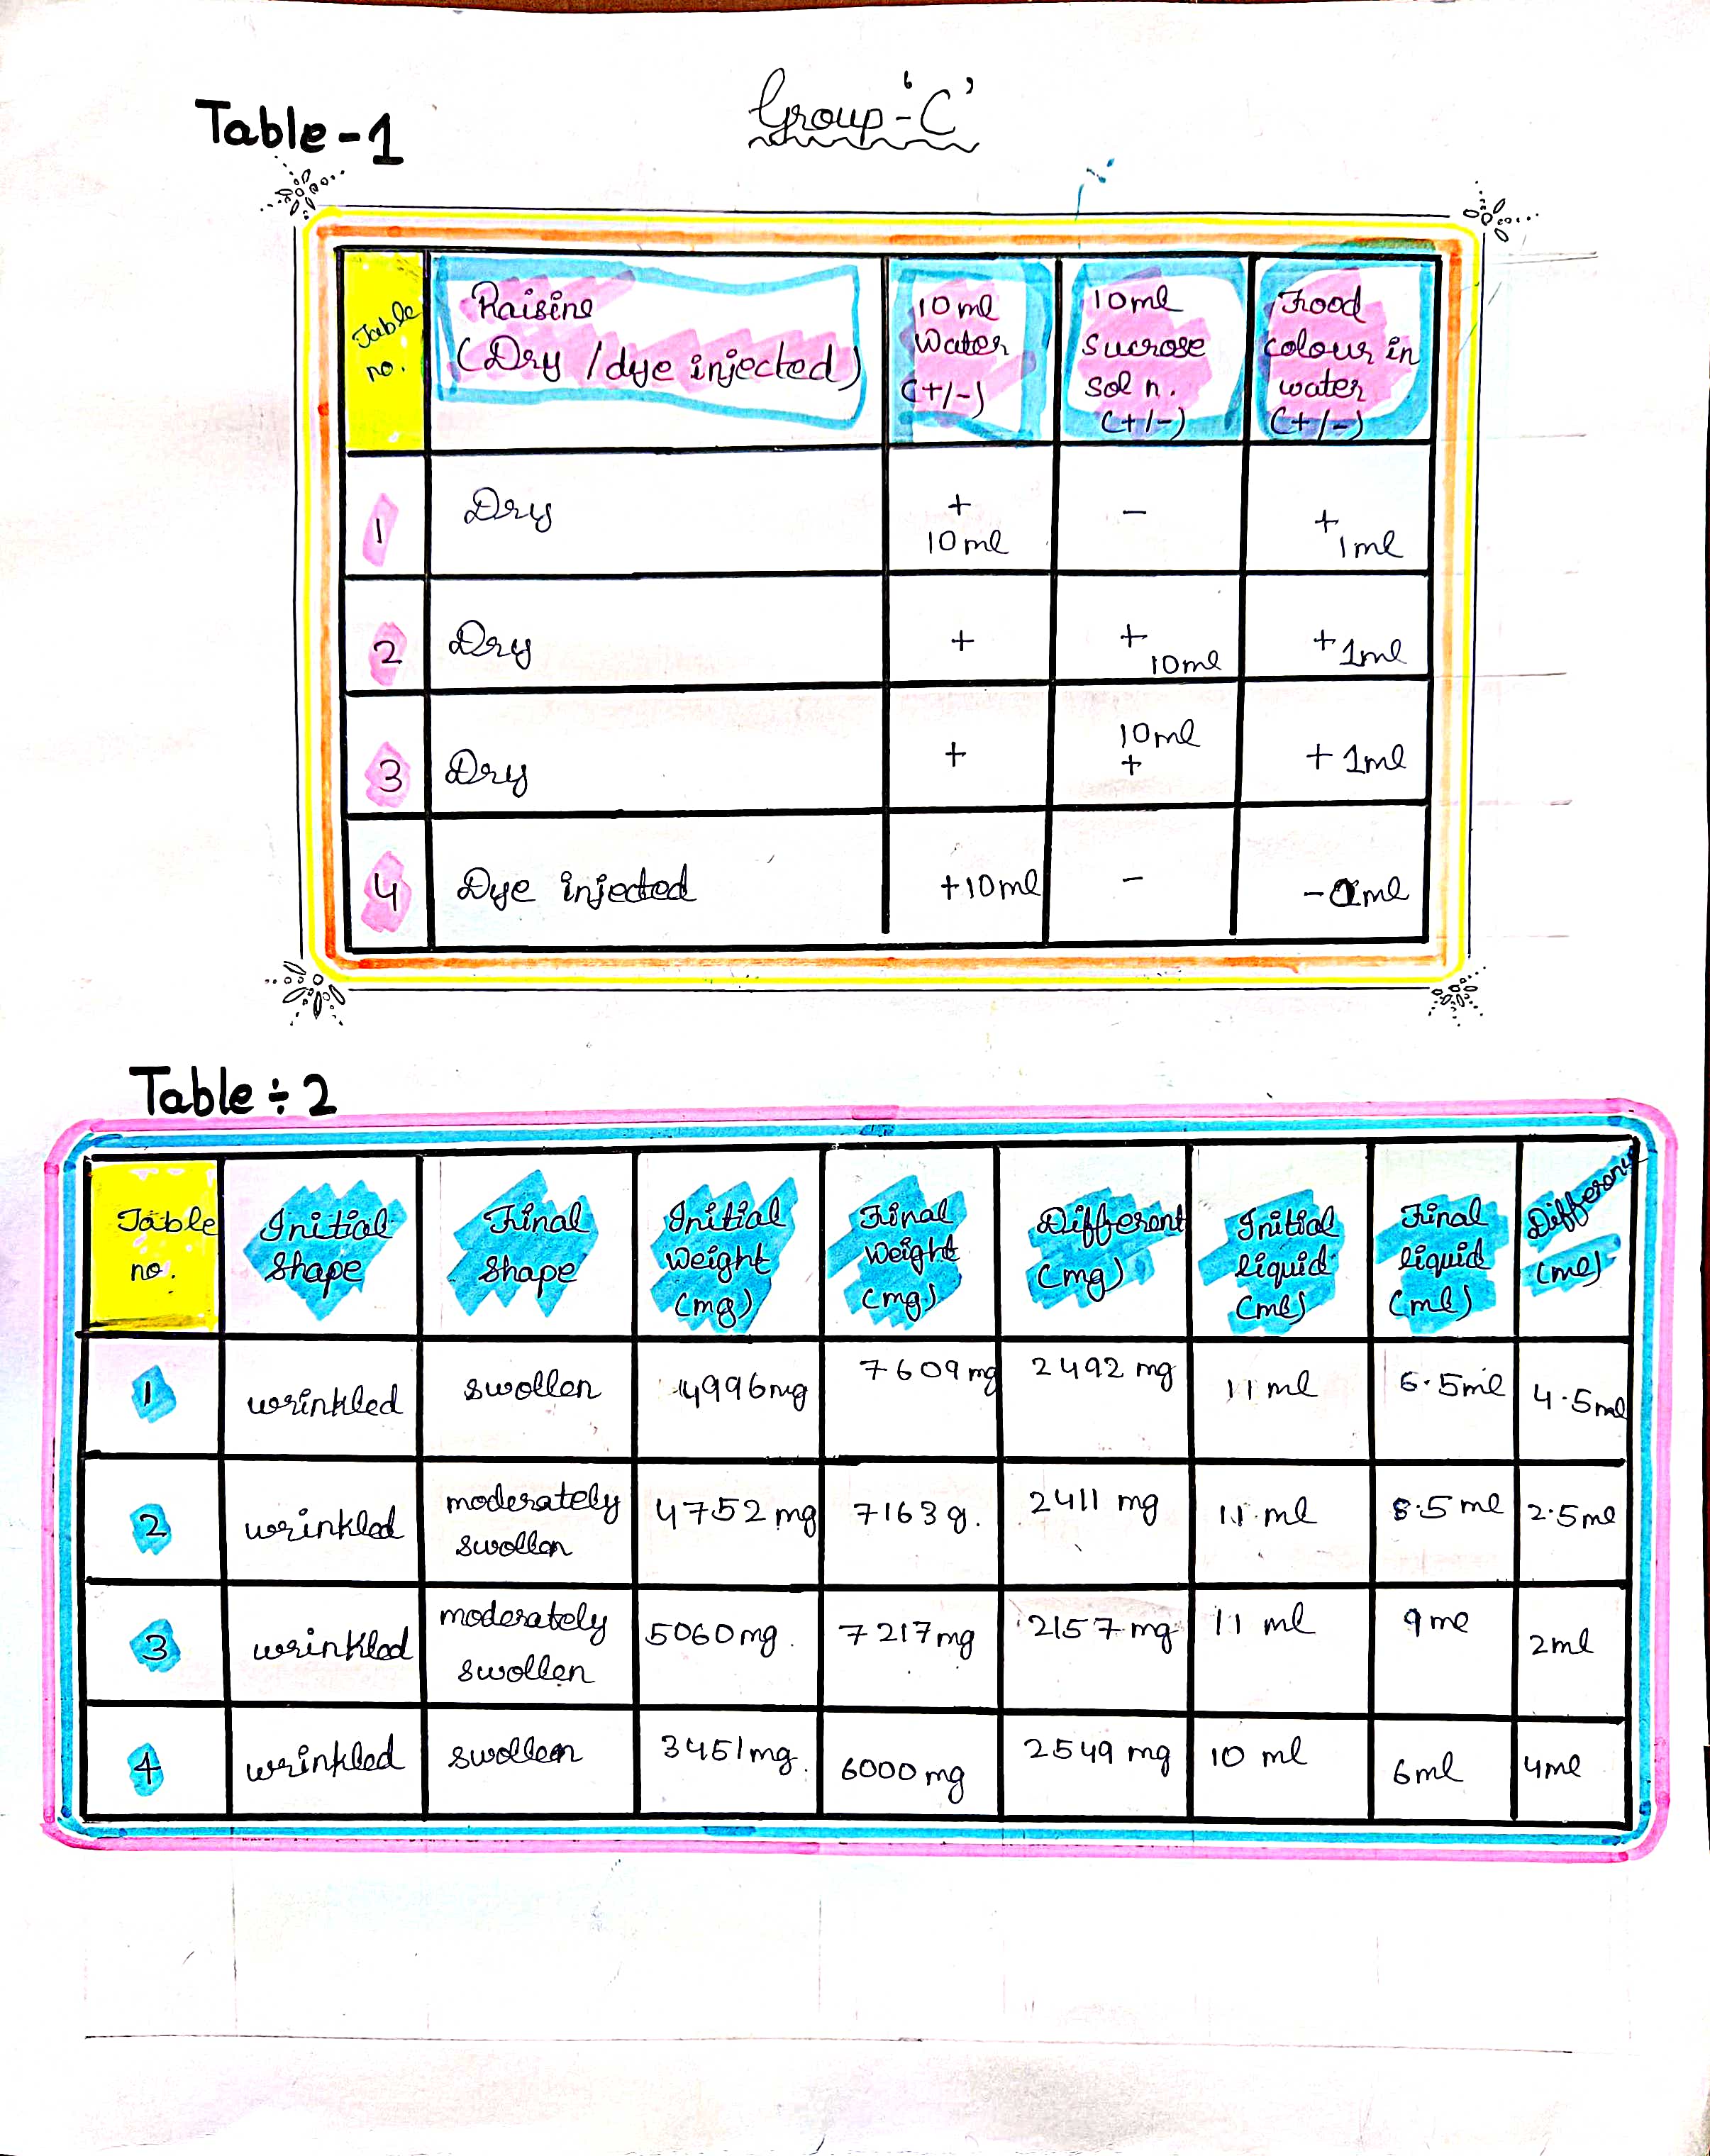 Group-'C'
Table-1
Table no. | Raisins (Dry / dye injected) | 10ml Water (+/-) | 10ml Sucrose sol n. (+/-) | Food colour in water (+/-)
1 | Dry | + 10ml | - | + 1ml
2 | Dry | + | + 10ml | + 1ml
3 | Dry | + | 10ml + | + 1ml
4 | Dye injected | +10ml | - | - 0ml
Table ÷ 2
Table no. | Initial Shape | Final Shape | Initial Weight (mg) | Final Weight (mg) | Different (mg) | Initial liquid (ml) | Final liquid (ml) | Difference (ml)
1 | wrinkled | swollen | 4996mg | 7609mg | 2492 mg | 11 ml | 6.5ml | 4.5ml
2 | wrinkled | moderately swollen | 4752 mg | 7163g. | 2411 mg | 11 ml | 8.5 ml | 2.5ml
3 | wrinkled | moderately swollen | 5060mg. | 7217mg | 2157mg | 11 ml | 9ml | 2ml
4 | wrinkled | swollen | 3451mg. | 6000mg | 2549 mg | 10 ml | 6ml | 4ml